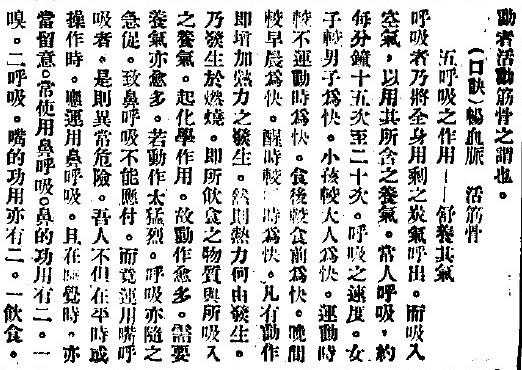 動者活動筋骨之謂也。
(口訣)暢血脈 活筋骨
五呼吸之作用——舒養其氣
呼吸者乃將全身用剩之炭氣呼出。而吸入
空氣，以用其所含之養氣。常人呼吸，約
每分鐘十五次至二十次。呼吸之速度。女
子較男子爲快。小孩較大人爲快。運動時
較不運動時爲快。食後較食前爲快。晚間
較早晨爲快。醒時較 時爲快。凡有動作
即增加熱力之發生。然則熱力何由發生。
乃發生於燃燒。即所飲食之物質與所吸入
之養氣。起化學作用。故動作愈多。需要
養氣亦愈多。若動作太猛烈。呼吸亦隨之
急促。致鼻呼吸不能應付。而竟運用嘴呼
吸者。是則異常危險。吾人不但在平時或
操作時。應運用鼻呼吸。且在睡覺時。亦
當留意。常使用鼻呼吸。鼻的功用有二。一
嗅。二呼吸。嘴的功用亦有二。一飲食。